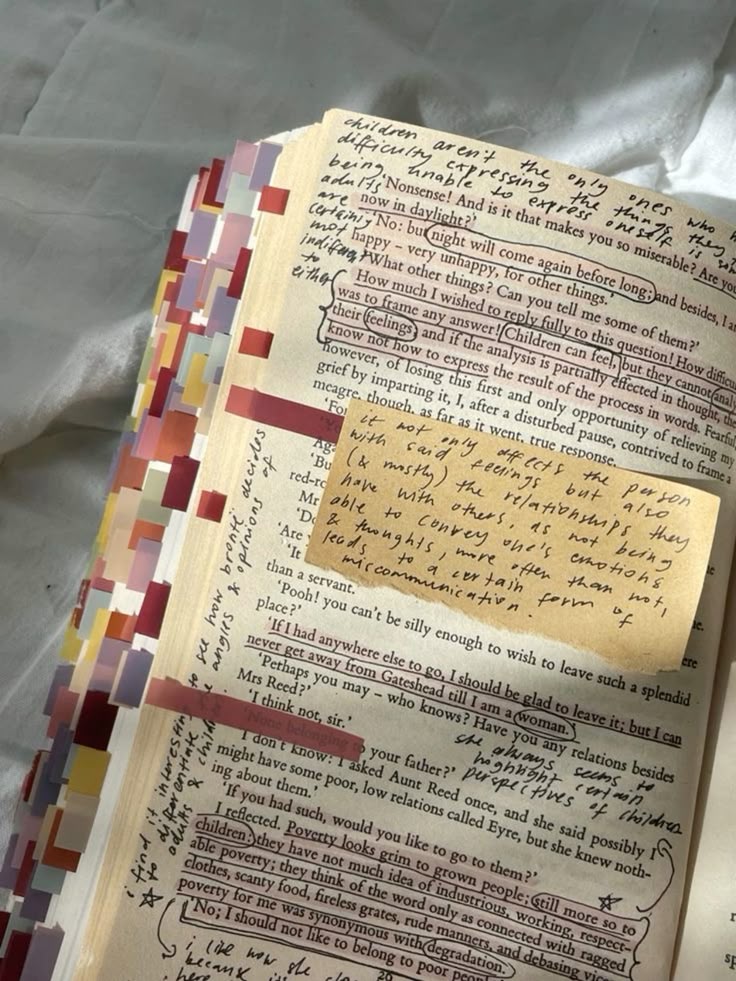 children aren't the only ones who
difficulty expressing the things they
being unable to express oneself is
adults
are
certainly
not
indifferent
to
either
'Nonsense! And is it that makes you so miserable? Are you
now in daylight?'
'No: but night will come again before long; and besides, I am
happy – very unhappy, for other things.'
'What other things? Can you tell me some of them?'
How much I wished to reply fully to this question! How difficult
was to frame any answer! Children can feel, but they cannot analy
their feelings; and if the analysis is partially effected in thought, the
know not how to express the result of the process in words. Fearful
however, of losing this first and only opportunity of relieving my
grief by imparting it, I, after a disturbed pause, contrived to frame a
meagre, though, as far as it went, true response.
'For
Ag
'Bu
red-ro
Mr
'Do
'Are
'It
it not only affects the person
with said feelings but also
(& mostly) the relationships they
have with others, as not being
able to convey one's emotions
& thoughts, more often than not,
leads to a certain form of
miscommunication.
than a servant.
'Pooh! you can't be silly enough to wish to leave such a splendid
place?'
'If I had anywhere else to go, I should be glad to leave it; but I can
never get away from Gateshead till I am a woman.'
'Perhaps you may – who knows? Have you any relations besides
Mrs Reed?'
'I think not, sir.'
'None belonging to your father?'
she always seems to
highlight certain
perspectives of children
'I don't know: I asked Aunt Reed once, and she said possibly I
might have some poor, low relations called Eyre, but she knew noth-
ing about them.'
'If you had such, would you like to go to them?'
I reflected. Poverty looks grim to grown people; still more so to
children: they have not much idea of industrious, working, respect-
able poverty; they think of the word only as connected with ragged
clothes, scanty food, fireless grates, rude manners, and debasing vice
poverty for me was synonymous with degradation.
'No; I should not like to belong to poor peopl
20
i find it interesting to see how brontë decides
to differentiate the angles & opinions of
adults & children
i like how she
because
here